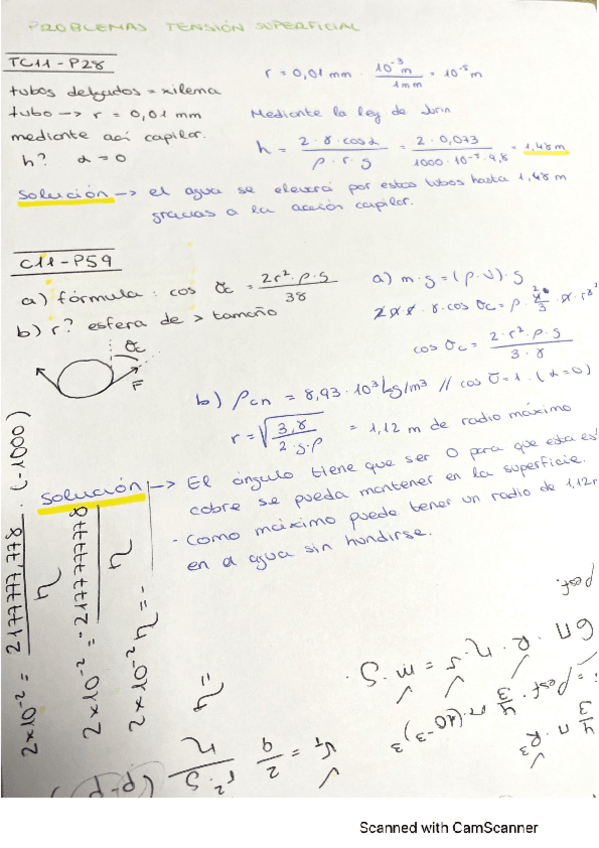 PROBLEMAS TENSIÓN SUPERFICIAL
TC11-P28
tubos delgados = xilema
tubo -> r = 0,01 mm
mediante acc capilar.
h? α = 0
r = 0,01 mm · 10^-3 m / 1mm = 10^-5 m
Mediante la ley de Jurin
h = 2·γ·cosα / ρ·r·g = 2·0,073 / 1000·10^-5·9,8 = 1,48 m
Solución -> el agua se elevará por estos tubos hasta 1,48 m
gracias a la acción capilar.
C11-P59
a) fórmula: cos θc = 2r²·ρ·g / 3γ
b) r? esfera de > tamaño
θc
F
a) m·g = (ρ·V)·g
γ·cos θc = ρ·
cos θc = 2·r²·ρ·g / 3·γ
b) ρcn = 8,93·10³ kg/m³ // cos θ = 1. (α=0)
r = √(3·γ / 2·g·ρ) = 1,12 m de radio máximo
Solución -> El ángulo tiene que ser 0 para que esta es
cobre se pueda mantener en la superficie.
- Como máximo puede tener un radio de 1,12m
en el agua sin hundirse.
2×10^-2 = 2177777,778 / η · (-1000)
2×10^-2 = -2177777778 / η
2×10^-2 η = -
η =
ρest.
6π · R · η · v = m · g.
= ρest · 4/3 π (10^-3)³
4/3 π · R³
v = 2/9 r²·g / η (ρ-ρ
Scanned with CamScanner